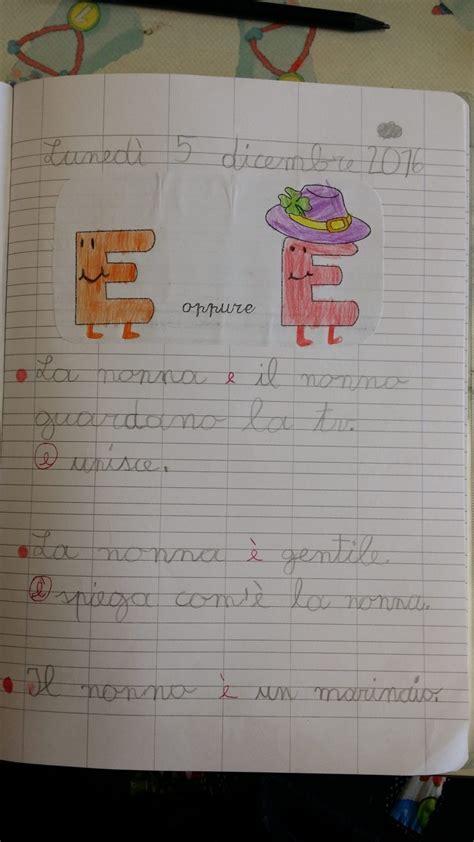 Lunedì 5 dicembre 2016
E oppure E
La nonna e il nonno
guardano la tv.
e unisce.
La nonna è gentile.
è spiega com'è la nonna.
Il nonno è un marinaio.